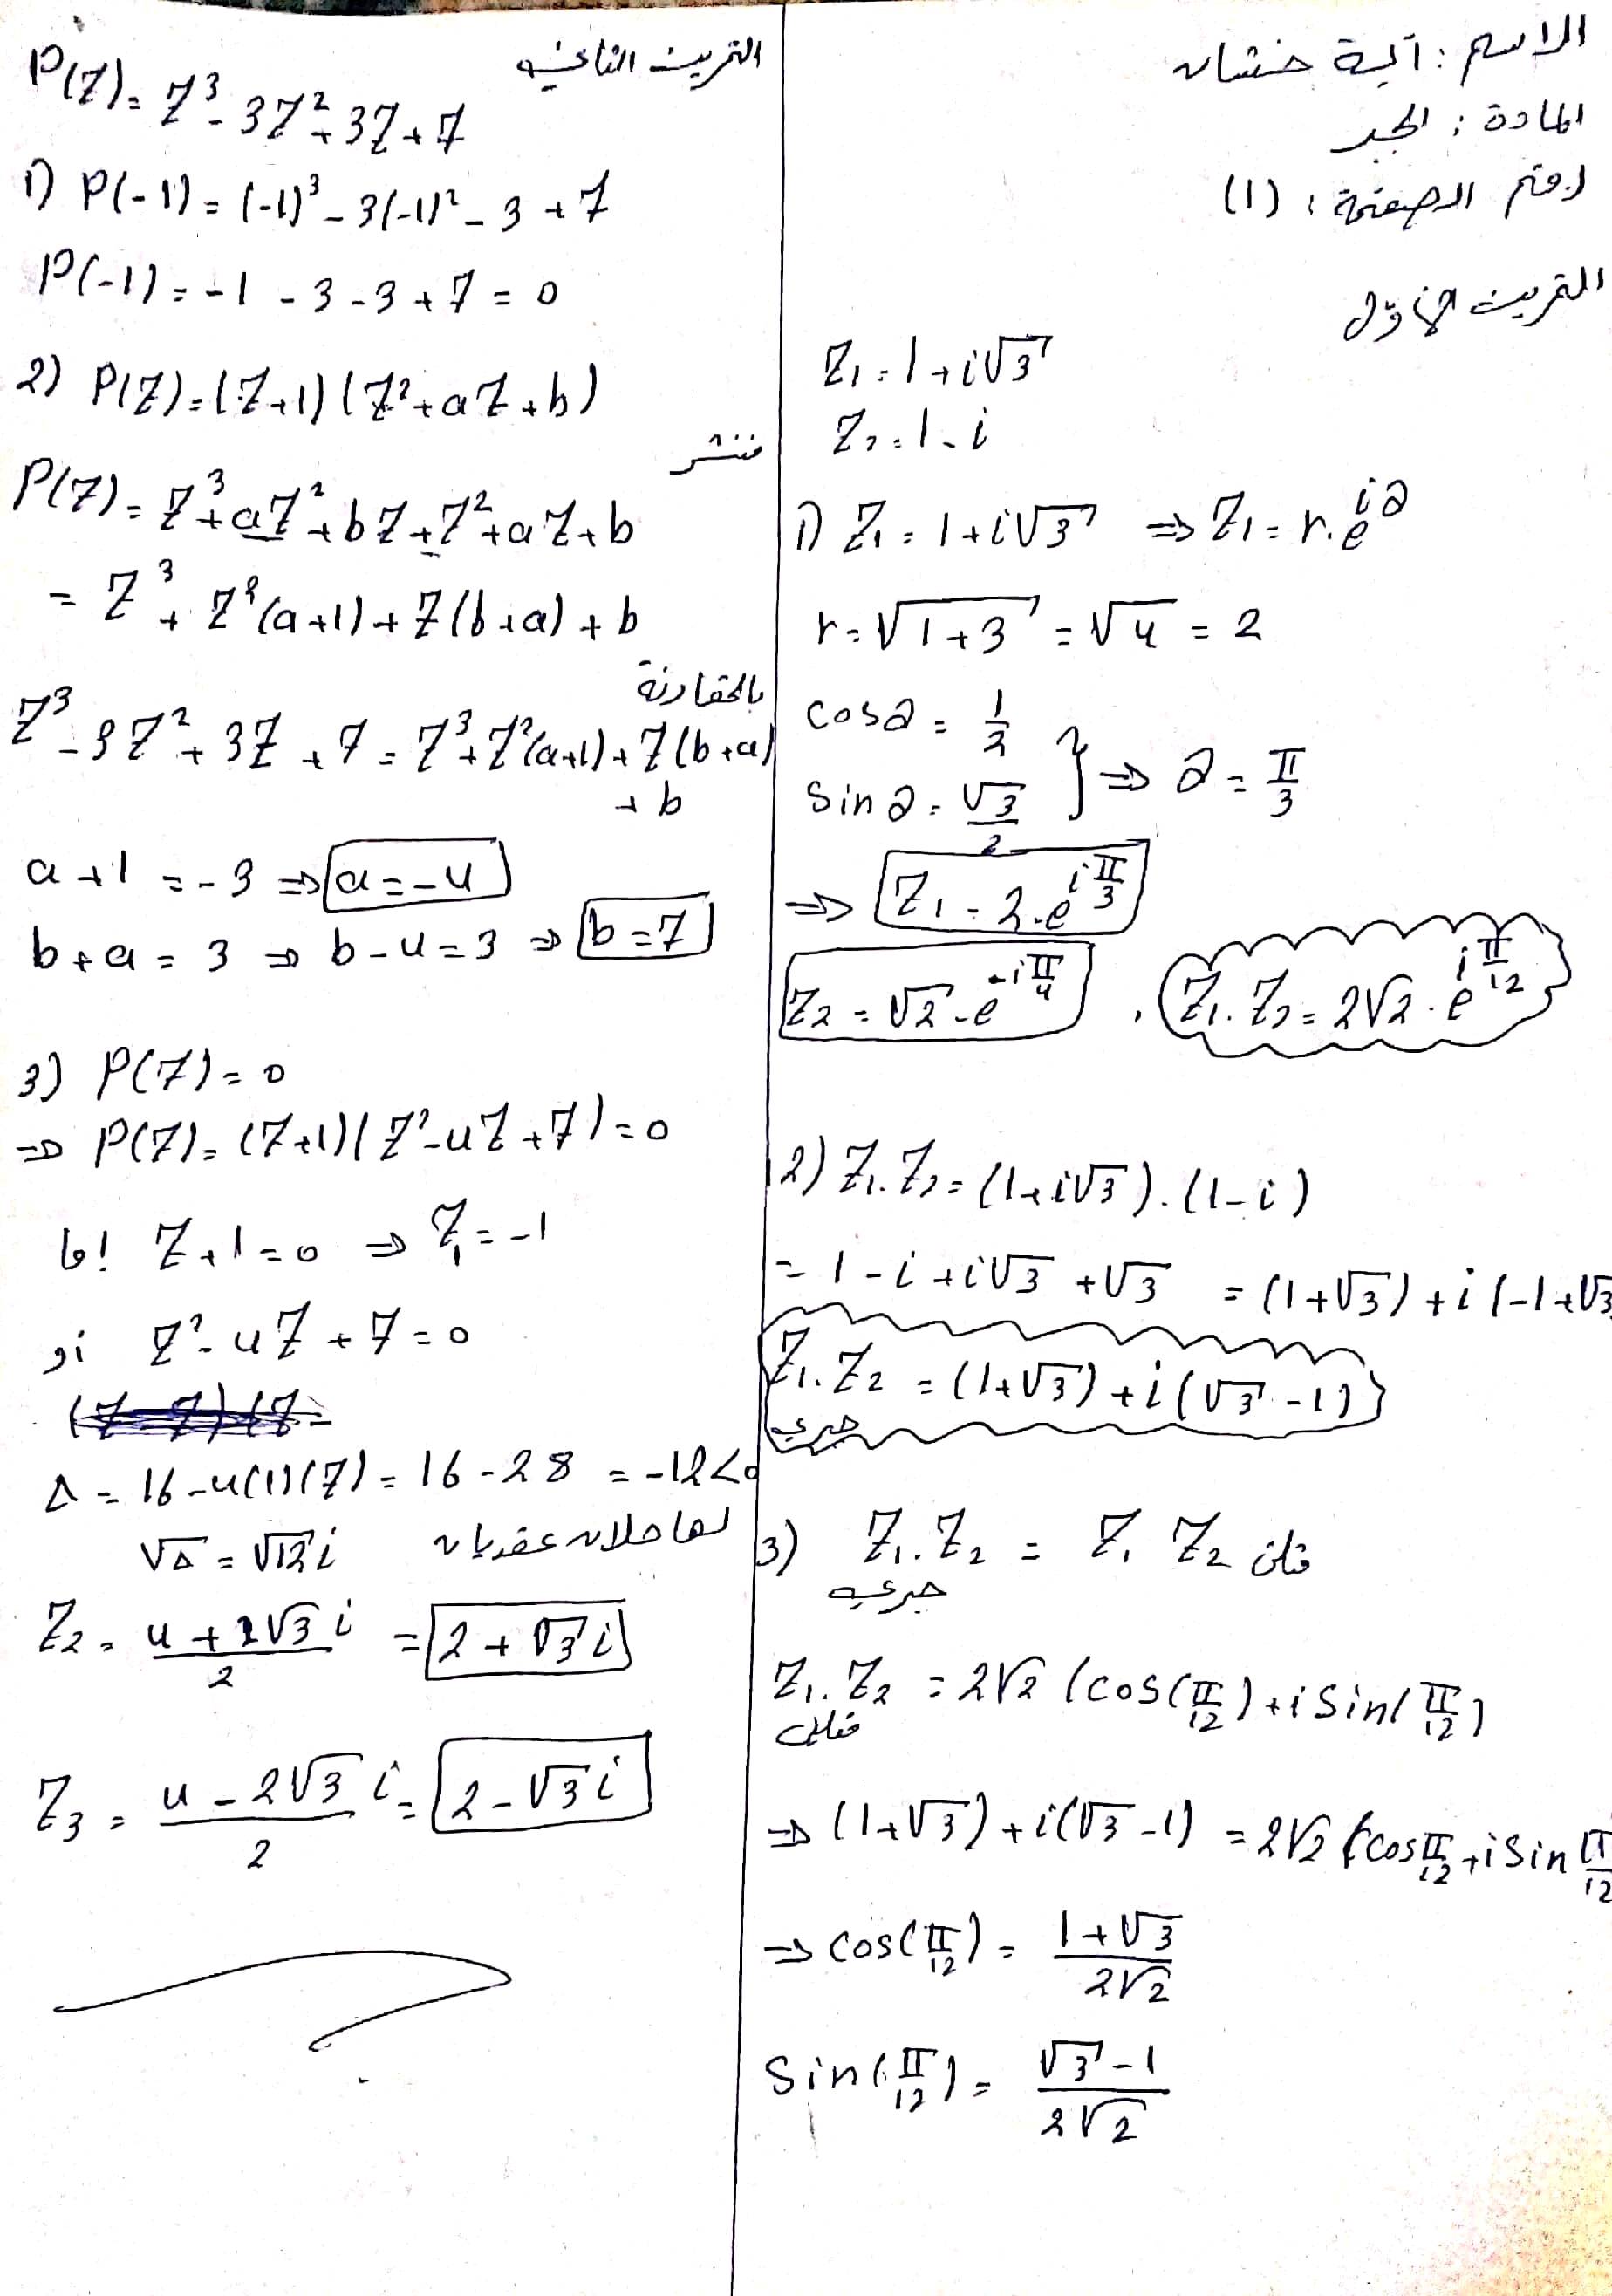 الاسم : آية خشان
المادة : الجبر
رقم الصفحة : (1)
التمرين الأول
Z₁ = 1 + i√3
Z₂ = 1 - i
1) Z₁ = 1 + i√3 ⇒ Z₁ = r . e^(iθ)
r = √(1+3) = √4 = 2
cosθ = 1/2
sinθ = √3/2 } ⇒ θ = π/3
⇒ Z₁ = 2 . e^(iπ/3)
Z₂ = √2 . e^(-iπ/4) , Z₁ . Z₂ = 2√2 . e^(iπ/12)
2) Z₁ . Z₂ = (1 + i√3) . (1 - i)
= 1 - i + i√3 + √3 = (1 + √3) + i(-1 + √3
Z₁ . Z₂ = (1 + √3) + i(√3 - 1)
جبري
3) Z₁ . Z₂ = Z₁ Z₂ مثلث
جبري
Z₁ . Z₂ = 2√2 (cos(π/12) + i sin(π/12)
مثلث
⇒ (1 + √3) + i(√3 - 1) = 2√2 (cos π/12 + i sin π/12
⇒ cos(π/12) = (1 + √3)/(2√2)
sin(π/12) = (√3 - 1)/(2√2)
التمرين الثاني
P(Z) = Z³ - 3Z² + 3Z + 7
1) P(-1) = (-1)³ - 3(-1)² - 3 + 7
P(-1) = -1 - 3 - 3 + 7 = 0
2) P(Z) = (Z+1)(Z² + aZ + b)
ننشر
P(Z) = Z³ + aZ² + bZ + Z² + aZ + b
= Z³ + Z²(a+1) + Z(b+a) + b
بالمقارنة
Z³ - 3Z² + 3Z + 7 = Z³ + Z²(a+1) + Z(b+a)
+ b
a + 1 = -3 ⇒ a = -4
b + a = 3 ⇒ b - 4 = 3 ⇒ b = 7
3) P(Z) = 0
⇒ P(Z) = (Z+1)(Z² - 4Z + 7) = 0
إما Z + 1 = 0 ⇒ Z₁ = -1
أو Z² - 4Z + 7 = 0
Δ = 16 - 4(1)(7) = 16 - 28 = -12 < 0
√Δ = √12 i لها حلان عقديان
Z₂ = (4 + 2√3 i)/2 = 2 + √3 i
Z₃ = (4 - 2√3 i)/2 = 2 - √3 i